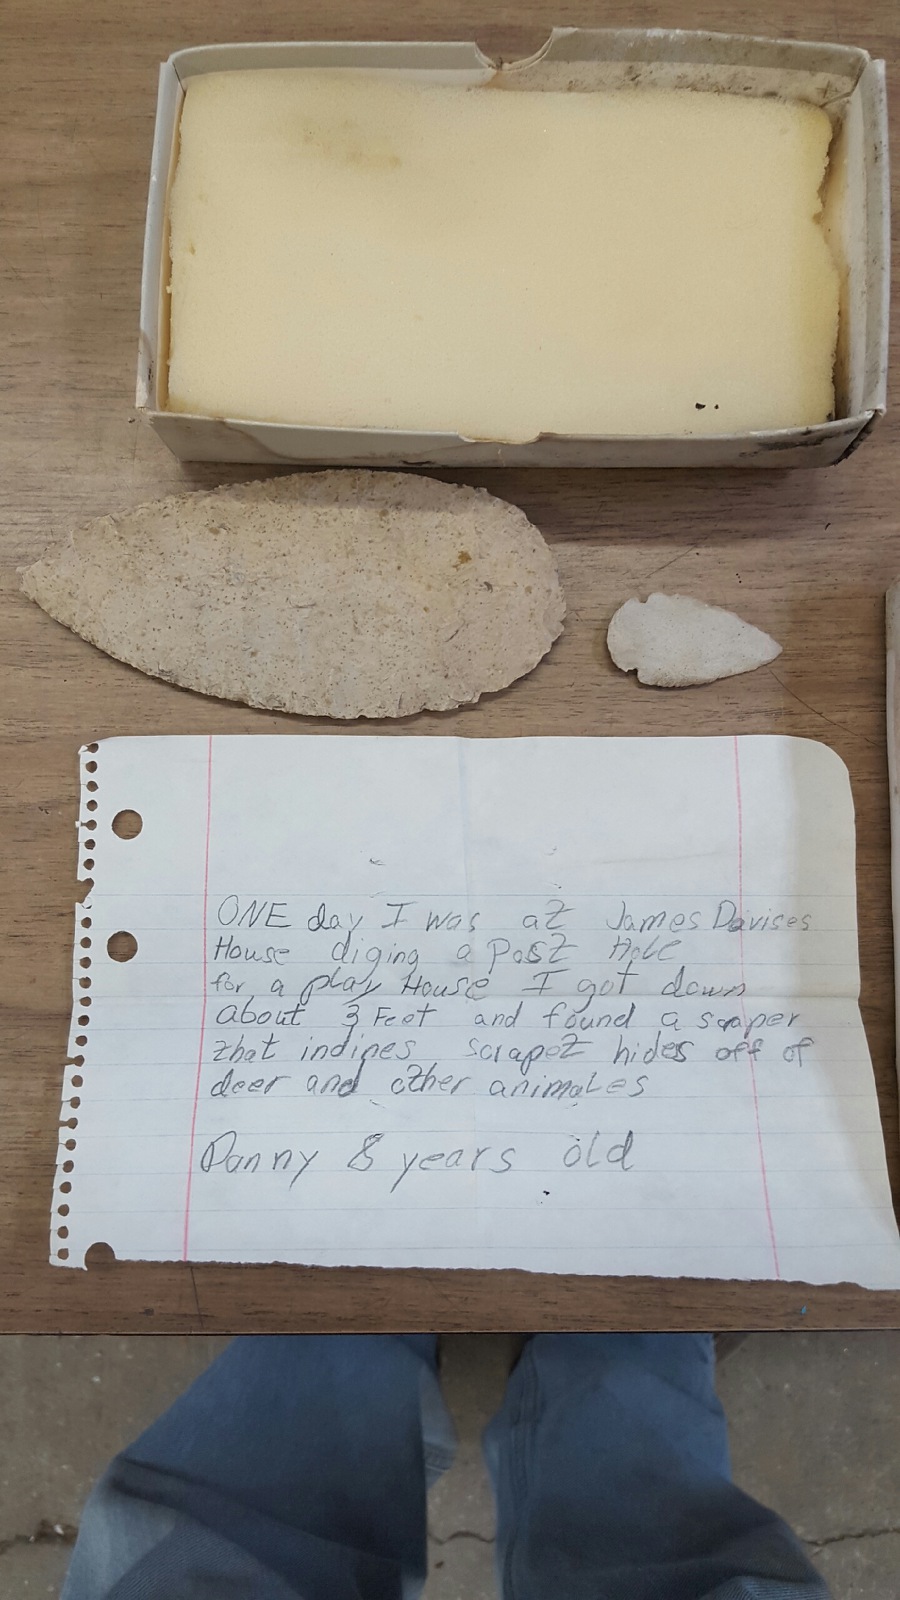 ONE day I was at James Davises
House diging a Post Hole
for a play House I got down
about 3 Feet and found a scraper
that indines scrapet hides off of
deer and other animales
Danny 8 years old